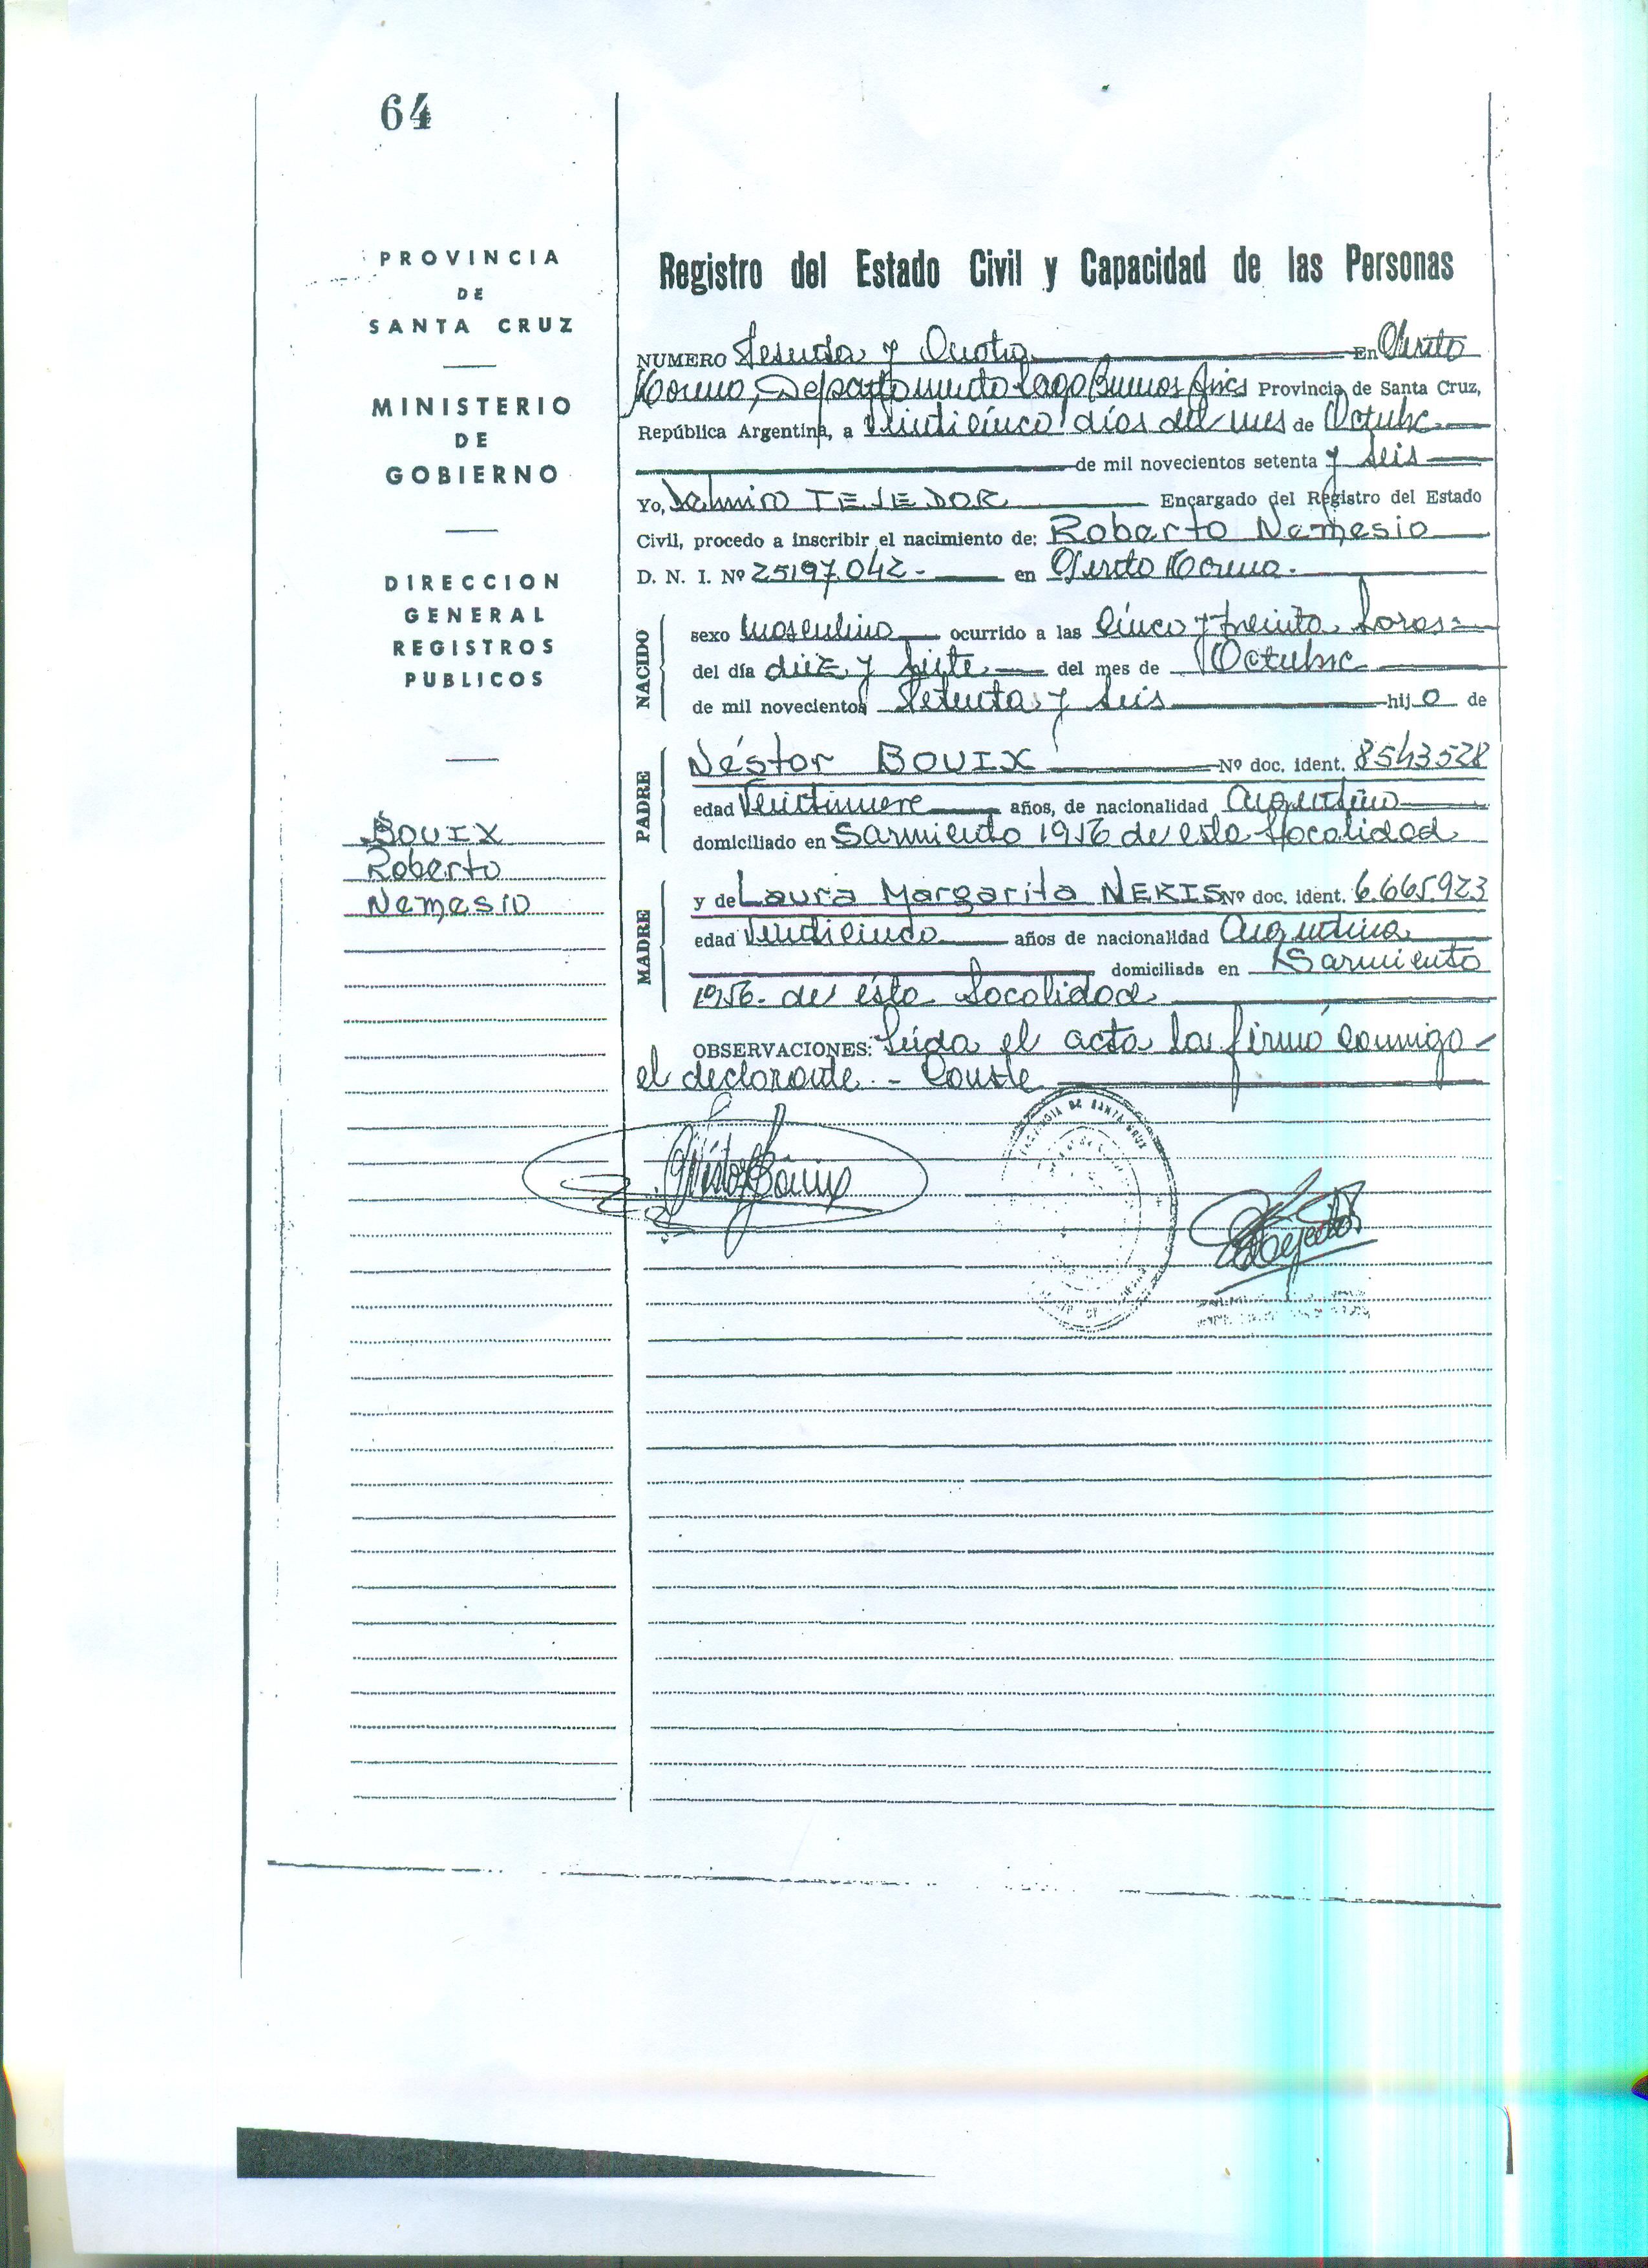 64
PROVINCIA
DE
SANTA CRUZ
MINISTERIO
DE
GOBIERNO
DIRECCION
GENERAL
REGISTROS
PUBLICOS
BOUIX
Roberto
Nemesio
Registro del Estado Civil y Capacidad de las Personas
NUMERO Sesenta y Cuatro En Perito
Moreno, Departamento Lago Buenos Aires Provincia de Santa Cruz,
República Argentina, a Veinticinco días del mes de Octubre
de mil novecientos setenta y seis
Yo, Delmiro TEJEDOR Encargado del Registro del Estado
Civil, procedo a inscribir el nacimiento de: Roberto Nemesio
D. N. I. Nº 25197.042.- en Perito Moreno.
NACIDO
sexo Masculino ocurrido a las Cinco y treinta horas
del día diez y siete del mes de Octubre
de mil novecientos Setenta y seis hijo de
PADRE
Néstor BOUIX Nº doc. ident. 8543528
edad Veintinueve años, de nacionalidad Argentino
domiciliado en Sarmiento 1956 de esta localidad
MADRE
y de Laura Margarita Nº doc. ident. 6.665.923
edad Veinticinco años de nacionalidad Argentina
domiciliada en Sarmiento
1956- de ésta localidad
OBSERVACIONES: Leida el acta la firmó conmigo
el declarante.- Conste
PROVINCIA DE SANTA CRUZ